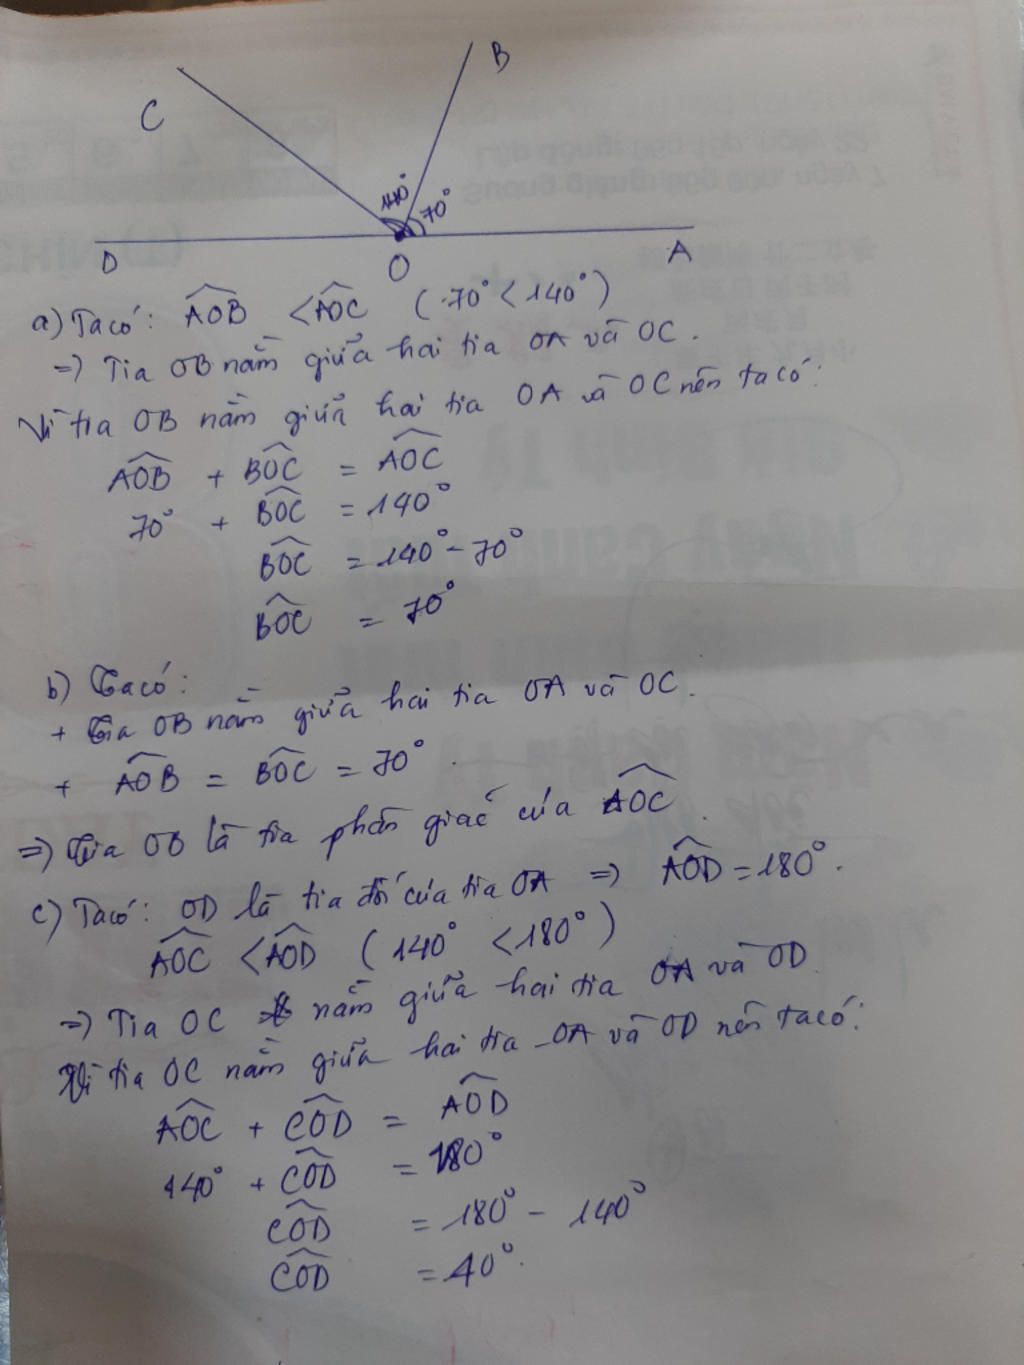 C
B
140°
70°
D
O
A
a) Ta có: AOB < AOC (70° < 140°)
=> Tia OB nằm giữa hai tia OA và OC.
Vì tia OB nằm giữa hai tia OA và OC nên ta có:
AOB + BOC = AOC
70° + BOC = 140°
BOC = 140° - 70°
BOC = 70°
b) Ta có:
+ Tia OB nằm giữa hai tia OA và OC.
+ AOB = BOC = 70°.
=> Tia OB là tia phân giác của AOC.
c) Ta có: OD là tia đối của tia OA => AOD = 180°.
AOC < AOD (140° < 180°)
=> Tia OC nằm giữa hai tia OA và OD
Vì tia OC nằm giữa hai tia OA và OD nên ta có:
AOC + COD = AOD
140° + COD = 180°
COD = 180° - 140°
COD = 40°.